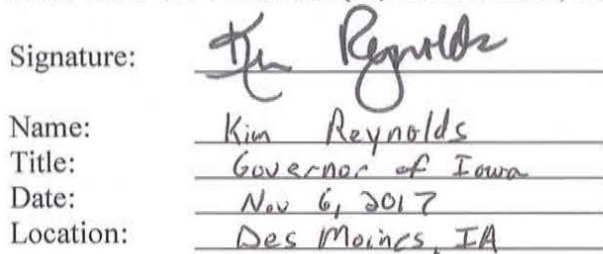 Signature: Kim Reynolds
Name: Kim Reynolds
Title: Governor of Iowa
Date: Nov 6, 2017
Location: Des Moines, IA